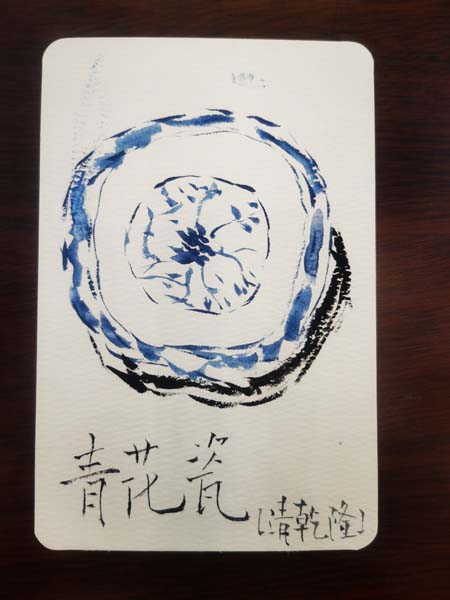 青花瓷
[清乾隆]